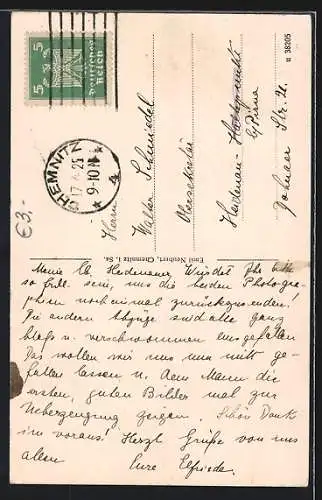 5 Deutsches Reich 5
CHEMNITZ
17. 25
9-10 N
4
€3,-
Herrn
Walter Schmiedel
Obersekretär
Heidenau-
b/Pirna
Dohnaer Str. 
u 38205
Emil Neubert, Chemnitz i. Sa.
Meine lb. Heidenauer, Würdet Ihr bitte
so frdl. sein, uns die beiden Photogra-
phien noch einmal zurückzusenden!
Die andern Abzüge sind alle ganz
blaß u. verschwommen ausgefallen
Das wollen wir uns nun nicht ge-
fallen lassen u. dem Mann die
ersten, guten Bilder mal zur
Ueberzeugung zeigen. Schön Dank
im voraus! Herzl. Grüße von uns
allen Eure Elfriede.